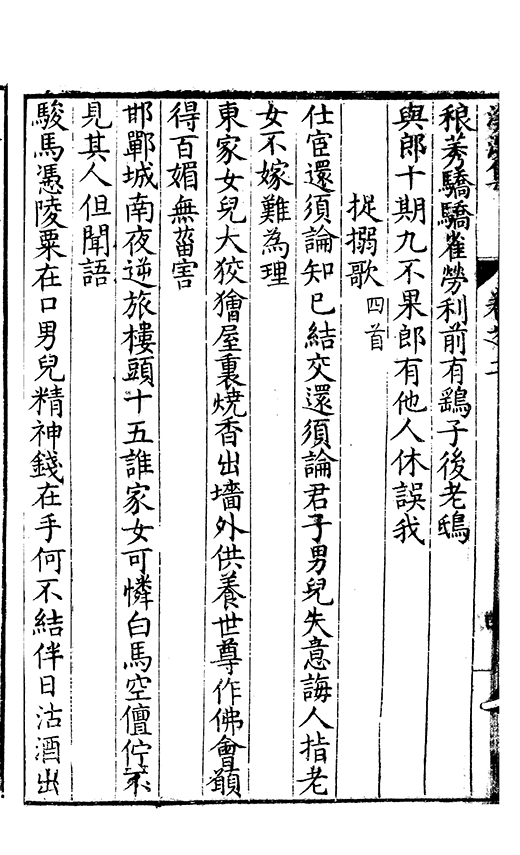 稂莠驕驕雀勞利前有鷂子後老鴟
與郎十期九不果郎有他人休誤我
捉搦歌四首
仕宦還須論知已結交還須論君子男兒失意誨人指老
女不嫁難為理
東家女兒大狡獪屋裏燒香出墻外供養世尊作佛會顓
得百媚無菑害
邯鄲城南夜逆旅樓頭十五誰家女可憐白馬空儃佇
見其人但聞語
駿馬憑陵粟在口男兒精神錢在手何不結伴日沽酒出